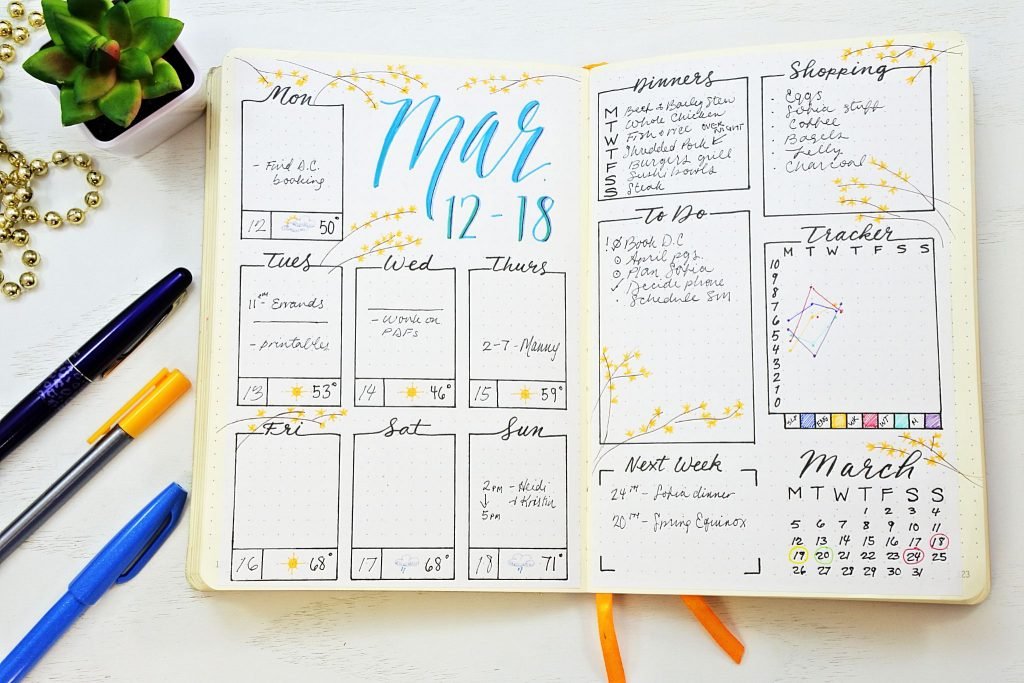 Mon
- Find D.C.
booking
12 50°
Mar
12-18
Tues
11 - Errands
- printables
13 53°
Wed
- Work on
PDFs
14 46°
Thurs
2-7 - Manny
15 59°
Fri
16 68°
Sat
17 68°
Sun
2pm - Heidi
↓ + Kristin
5pm
18 71°
Dinners
M Beef & Barley Stew
T Whole Chicken
W Fish & rice OVER NIGHT
T Shredded Pork
F Burgers grill
S Sushi bowls
S Steak
Shopping
· Eggs
· Sofia stuff
· Coffee
· Bagels
· Jelly
· Charcoal
To Do
! Book D.C
April pgs.
Plan Sofia
✓ Decide phone
· Schedule SM
Tracker
M T W T F S S
10
9
8
7
6
5
4
3
2
1
0
SLP ENG WK WT M
Next Week
24TH - Sofia dinner
20TH - Spring Equinox
March
M T W T F S S
1 2 3 4
5 6 7 8 9 10 11
12 13 14 15 16 17 18
19 20 21 22 23 24 25
26 27 28 29 30 31
23